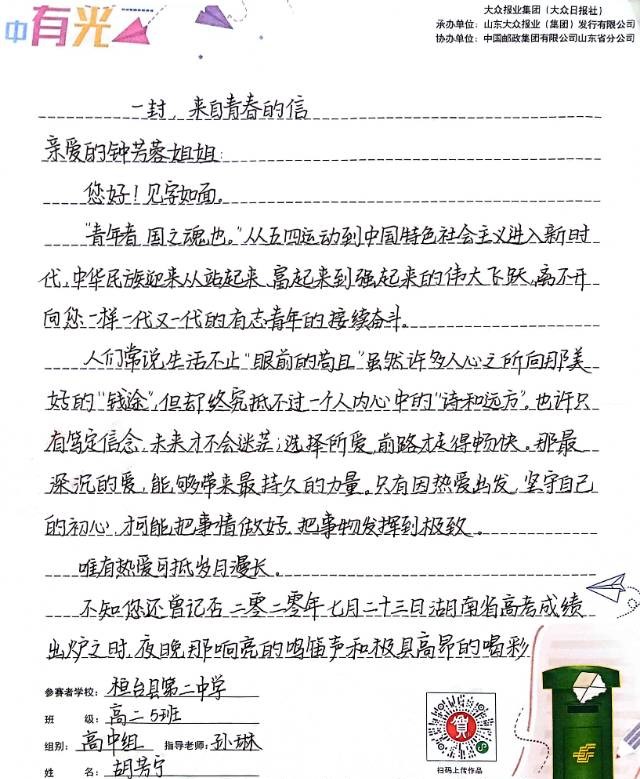 中有光
大众报业集团（大众日报社）
承办单位：山东大众报业（集团）发行有限公司
协办单位：中国邮政集团有限公司山东省分公司
一封，来自青春的信
亲爱的钟芳蓉姐姐：
您好！见字如面。
“青年者，国之魂也。”从五四运动到中国特色社会主义进入新时
代，中华民族迎来从站起来、富起来到强起来的伟大飞跃，离不开
向您一样一代又一代的有志青年的接续奋斗。
人们常说生活不止“眼前的苟且”虽然许多人心之所向那美
好的“钱途”，但却终究抵不过一个人内心中的“诗和远方”。也许只
有笃定信念，未来才不会迷茫；选择所爱，前路才走得畅快。那最
深沉的爱，能够带来最持久的力量。只有因热爱出发，坚守自己
的初心，才可能把事情做好，把事物发挥到极致。
唯有热爱可抵岁月漫长。
不知您还曾记否，二零二零年七月二十三日湖南省高考成绩
出炉之时，夜晚，那响亮的鸣笛声和极具高昂的喝彩
参赛者学校：桓台县第二中学
班 级：高二5班
组别：高中组 指导老师：孙琳
姓 名：胡芳宁
扫码上传作品